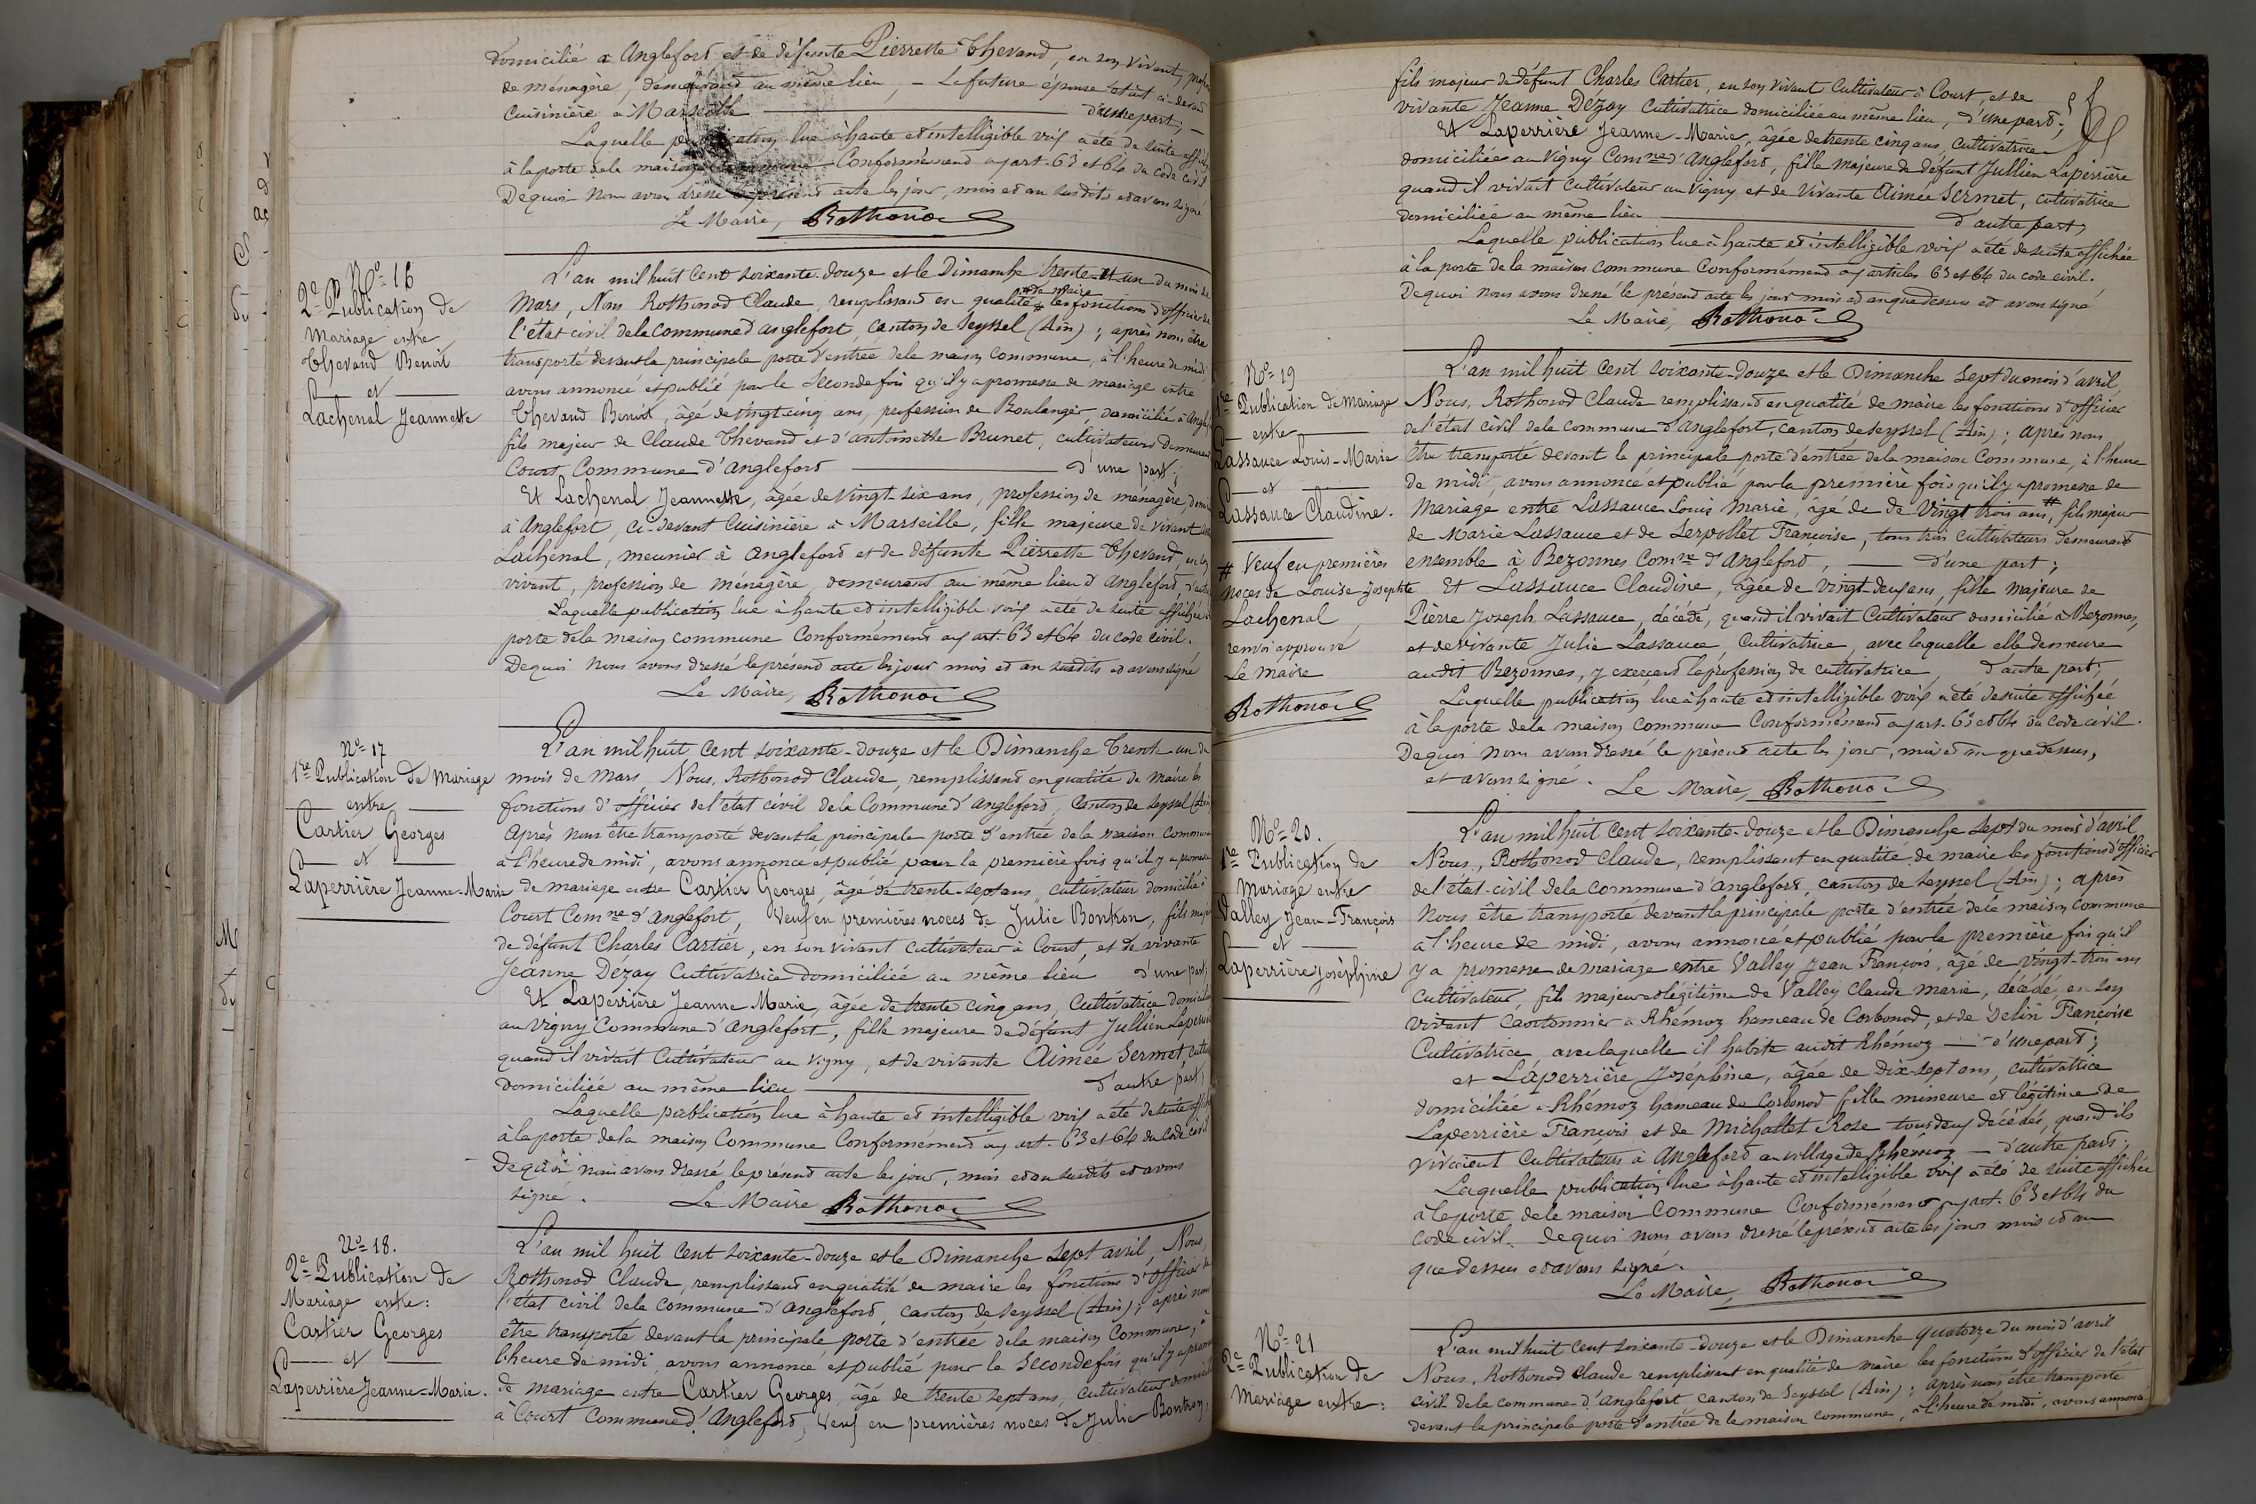 domicilié à Anglefort et de défunte Pierrette Thevand, en son vivant,
de ménagère, demeurant au même lieu, – La future épouse était ci-devant
Cuisinière à Marseille d'une part; –
Laquelle publication lue à haute et intelligible voix a été de suite affichée
à la porte de la maison commune Conformément aux art. 63 et 64 du code civil
De quoi nous avons dressé le présent acte les jour, mois et an susdits et avons signé
Le Maire, Rothonod
Nº 16
2e Publication de
Mariage entre
Thevand Benoit
et
Lachenal Jeannette
L'an mil huit cent soixante-douze et le Dimanche trente et un du mois de
Mars, Nous Rothonod Claude, remplissant en qualité de maire les fonctions d'officier de
l'état civil de la Commune d'anglefort, canton de Seyssel (Ain); après nous être
transporté devant la principale porte d'entrée de la maison Commune, à l'heure de midi
avons annoncé et publié pour la Seconde fois qu'il y a promesse de mariage entre
Thevand Benoit, âgé de vingt-cinq ans, profession de Boulanger, domicilié à Anglefort
fils majeur de Claude Thevand et d'antoinette Brunet, cultivateurs demeurant
Court, Commune d'Anglefort d'une part;
Et Lachenal Jeannette, âgée de Vingt-six ans, profession de ménagère,
à Anglefort, ci-devant Cuisinière à Marseille, fille majeure de vivant
Lachenal, meunier à anglefort et de défunte Pierrette Thevand, en son
vivant, profession de ménagère, demeurant au même lieu d'Anglefort, d'autre
Laquelle publication lue à haute et intelligible voix a été de suite affichée
porte de la maison commune Conformément aux art. 63 et 64 du code civil.
De quoi nous avons dressé le présent acte les jour mois et an susdits et avons signé
Le Maire, Rothonod
Nº 17
1re Publication de Mariage
entre
Cartier Georges
et
Laperrière Jeanne-Marie
L'an mil huit cent soixante-douze et le Dimanche Trente-un du
mois de Mars, Nous, Rothonod Claude, remplissant en qualité de maire les
fonctions d'officier de l'état civil de la Commune d'anglefort, Canton de Seyssel (Ain)
Après nous être transporté devant la principale porte d'entrée de la maison commune
à l'heure de midi, avons annoncé et publié pour la première fois qu'il y a promesse
de mariage entre Cartier Georges, âgé de trente-sept ans, cultivateur domicilié à
Court Comne d'Anglefort, Veuf en premières noces de Julie Bonton, fils majeur
de défunt Charles Cartier, en son vivant cultivateur à Court, et de vivante
Jeanne Dézay Cultivatrice domiciliée au même lieu d'une part,
Et Laperrière Jeanne Marie, âgée de trente cinq ans, Cultivatrice domiciliée
au Vigny Commune d'Anglefort, fille majeure de défunt Jullien Laperrière
quand il vivait Cultivateur au Vigny, et de vivante Aimée Sermet,
domiciliée au même lieu d'autre part,
Laquelle publication lue à haute et intelligible voix a été de suite affichée
à la porte de la maison Commune Conformément aux art. 63 et 64 du Code civil
De quoi nous avons dressé le présent acte les jour, mois et an susdits et avons
signé. Le Maire Rothonod
Nº 18.
2e Publication de
Mariage entre:
Cartier Georges
et
Laperrière Jeanne-Marie.
L'an mil huit cent soixante-douze et le Dimanche Sept avril, Nous
Rothonod Claude, remplissant en qualité de maire les fonctions d'officier de
l'état civil de la Commune d'anglefort, canton de Seyssel (Ain); après nous
être transporté devant la principale porte d'entrée de la maison Commune, à
l'heure de midi avons annoncé et publié pour la Seconde fois qu'il y a promesse
de mariage entre Cartier Georges, âgé de trente sept ans, cultivateur domicilié
à Court Commune d'Anglefort, Veuf en premières noces de Julie Bonton,
fils majeur de défunt Charles Cartier, en son vivant Cultivateur à Court, et de
vivante Jeanne Dézay Cultivatrice domiciliée au même lieu, d'une part;
Et Laperrière Jeanne-Marie, âgée de trente cinq ans, cultivatrice
domiciliée au Vigny Comne d'Anglefort, fille majeure de défunt Jullien Laperrière
quand il vivait Cultivateur au Vigny et de Vivante Aimée Sermet, cultivatrice
domiciliée au même lieu d'autre part,
Laquelle publication lue à haute et intelligible voix a été de suite affichée
à la porte de la maison commune Conformément aux articles 63 et 64 du code civil.
De quoi nous avons dressé le présent acte les jour mois et an que dessus et avons signé
Le Maire, Rothonod
Nº 19
1re Publication de Mariage
entre
Lassauce Louis-Marie
et
Lassauce Claudine.
# Veuf en premières
noces de Louise-Josephte
Lachenal
renvoi approuvé
Le Maire
Rothonod
L'an mil huit cent soixante-douze et le Dimanche Sept du mois d'avril,
Nous, Rothonod Claude remplissant en qualité de maire les fonctions d'officier
de l'état civil de la commune d'Anglefort, canton de Seyssel (Ain); après nous
être transporté devant la principale porte d'entrée de la maison Commune, à l'heure
de midi, avons annoncé et publié pour la première fois qu'il y a promesse de
Mariage entre Lassauce Louis Marie, âgé de de Vingt trois ans #, fils majeur
de Marie Lassauce et de Servollet Françoise, tous trois cultivateurs demeurant
ensemble à Bezonnes Comne d'Anglefort, d'une part;
Et Lassauce Claudine, âgée de vingt-deux ans, fille majeure de
Pierre Joseph Lassauce, décédé, quand il vivait Cultivateur domicilié à Bezonnes,
et de vivante Julie Lassauce, Cultivatrice, avec laquelle elle demeure
audit Bezonnes, y exerçant la profession de cultivatrice, d'autre part;
Laquelle publication lue à haute et intelligible voix a été de suite affichée
à la porte de la maison commune Conformément aux art. 63 et 64 du code civil.
De quoi nous avons dressé le présent acte les jour, mois et an que dessus,
et avons signé. Le Maire, Rothonod
Nº 20.
1re Publication de
Mariage entre
Valley Jean-François
et
Laperrière Joséphine
L'an mil huit cent soixante-douze et le Dimanche sept du mois d'avril
Nous, Rothonod Claude, remplissant en qualité de maire les fonctions d'officier
de l'état-civil de la commune d'Anglefort, canton de Seyssel (Ain); après
Nous être transporté devant la principale porte d'entrée de la maison Commune
à l'heure de midi, avons annoncé et publié pour la première fois qu'il
y a promesse de mariage entre Valley Jean François, âgé de vingt-trois ans
Cultivateur, fils majeur et légitime de Valley Claude Marie, décédé, en son
vivant Cantonnier à Rhémoz hameau de Corbonod, et de Velin Françoise
Cultivatrice, avec laquelle il habite audit Rhémoz — d'une part;
et Laperrière Joséphine, âgée de dix-sept ans, cultivatrice
domiciliée à Rhémoz hameau de Corbonod fille mineure et légitime de
Laperrière François et de Michallet Rose tous deux décédés, quand ils
vivaient Cultivateurs à Anglefort au village de Rhémoz — d'autre part;
Laquelle publication lue à haute et intelligible voix a été de suite affichée
à la porte de la maison Commune Conformément aux art. 63 et 64 du
Code civil. De quoi nous avons dressé le présent acte les jour mois et an
que dessus et avons signé.
Le Maire, Rothonod
Nº 21
2e Publication de
Mariage entre:
L'an mil huit cent soixante-douze et le Dimanche quatorze du mois d'avril
Nous, Rothonod Claude remplissant en qualité de maire les fonctions d'officier de l'état
civil de la commune d'Anglefort canton de Seyssel (Ain); après nous être transporté
devant la principale porte d'entrée de la maison commune, à l'heure de midi, avons annoncé